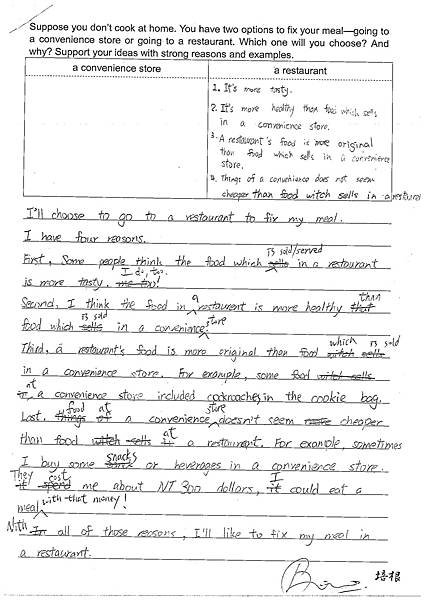 Suppose you don't cook at home. You have two options to fix your meal—going to
a convenience store or going to a restaurant. Which one will you choose? And
why? Support your ideas with strong reasons and examples.
a convenience store
a restaurant
1. It's more tasty.
2. It's more healthy than food which sells
in a convenience store.
3. A restaurant's food is more original
than food which sells in a convenience
store.
3. Things of a convenience does not seem
cheaper than food witch sells in a restaurant
I'll choose to go to a restaurant to fix my meal.
I have four reasons.
is sold/served
First, Some people think the food which sells in a restaurant
I do, too.
is more tasty. me too!
a than
Second, I think the food in restaurent is more healthy that
is sold store
food which sells in a convenience.
which is sold
Third, a restaurant's food is more original than food witch sells
in a convenience store. For example, some food witch sells
at
in a convenience store included cockroaches in the cookie bag.
food at store
Last, things of a convenience doesn't seem more cheaper
at
than food witch sells in a restaurant. For example, sometimes
snacks
I buy some or beverages in a convenience store.
They cost I
it spend me about NT 300 dollars, it could eat a
meal with that money!
With In all of those reasons, I'll like to fix my meal in
a restaurant.
培根